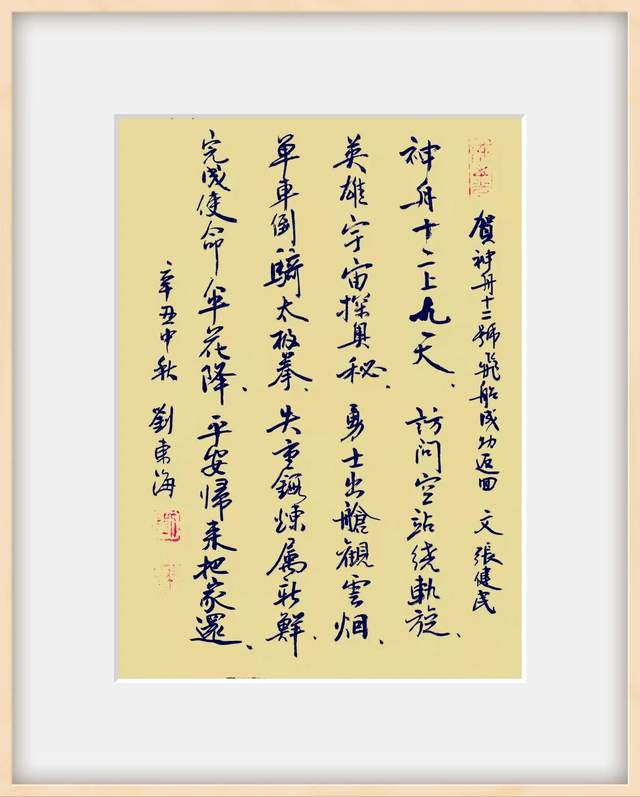 賀神舟十二號飛船成功返回 文 張健民
神舟十二上九天、訪問空站绕軌旋、
英雄宇宙探奥秘、勇士出艙觀雲烟、
单車倒騎太极拳、失重鍛煉属新鮮、
完成使命伞花降、平安歸来把家還、
辛丑中秋 劉東海